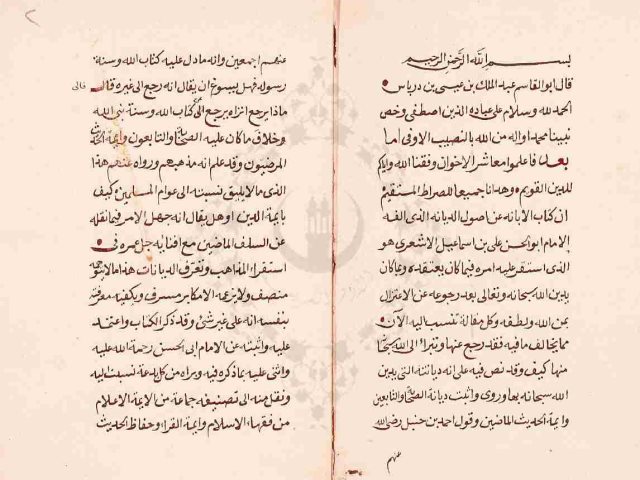 بسم الله الرحمن الرحيم
قال ابو القاسم عبد الملك بن عيسى بن درباس
الحمد لله وسلام على عباده الذين اصطفى وخص
نبينا محمدا واله من الله بالنصيب الاوفى اما
بعد فاعلموا معاشر الاخوان وفقنا الله واياكم
للدين القويم وهدانا جميعا للصراط المستقيم
ان كتاب الابانه عن اصول الديانه الذى الفه
الامام ابو الحسن على بن اسماعيل الاشعرى هو
الذى استقر عليه امره فيما كان يعتقده وبما كان
يدين الله سبحانه وتعالى بعد رجوعه عن الاعتزال
بمن الله ولطفه وكل مقالة تنسب اليه الآن
مما يخالف ما فيه فقد رجع عنها وتبرا الى الله سبحانه
منها كيف وقد نص فيه على انه ديانته التى يدين
الله سبحانه بها وروى واثبت ديانة الصحابة والتابعين
وايمة الحديث الماضين وقول احمد بن حنبل رضى الله
عنهم
عنهم اجمعين وانه ما دل عليه كتاب الله وسنة
رسوله فهل يسوغ ان يقال انه رجع الى غيره قال
فالى
ماذا يرجع اتراه يرجع الى كتاب الله وسنة نبى الله
وخلاف ما كان عليه الصحابة والتابعون وايمة الحديث
المرضيون وقد علم انه مذهبهم ورواه عنهم هذا
الذى ما لا يليق نسبته الى عوام المسلمين كيف
بايمة الدين او هل يقال انه جهل الامر فيما نقله
عن السلف الماضين مع افنايه جل عمره فى
استقرا المذاهب وتعرف الديانات هذا ما لا يتوهمه
منصف ولا يزعمه الا مكابر مسرف ويكفيه معرفته
بنفسه انه على غير شئ وقد ذكر الكتاب واعتمد
عليه واثبته عن الامام ابى الحسن رحمة الله عليه
واثنى عليه بما ذكره فيه وبراه من كل بدعة نسبت اليه
ونقل منه الى تصنيفه جماعة من الايمة الاعلام
من فقهاء الاسلام وايمة القراء وحفاظ الحديث